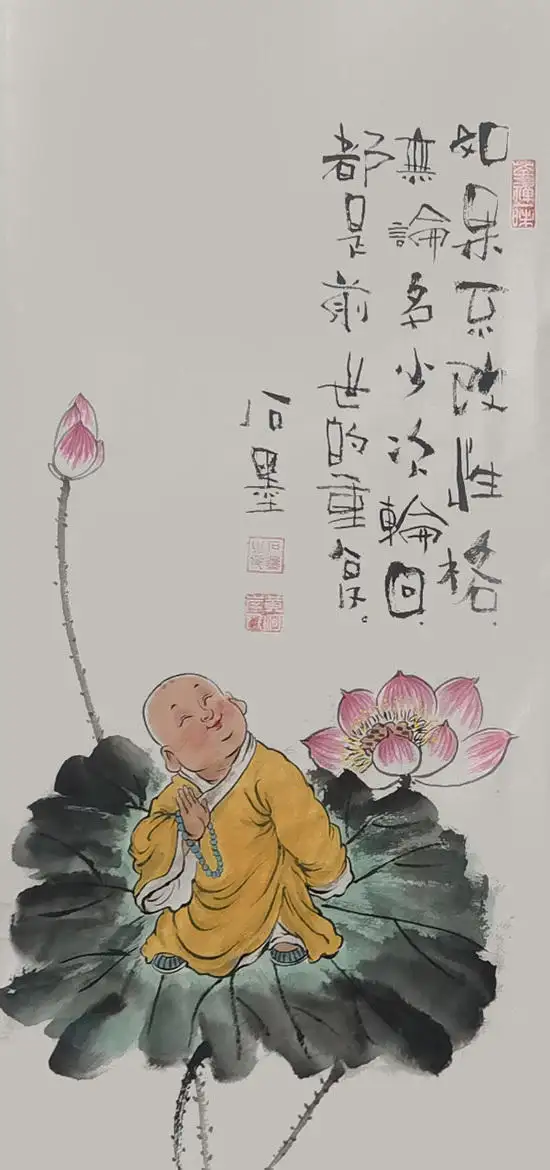 如果不改性格.
無論多少次輪回.
都是前世的重复。
石墨